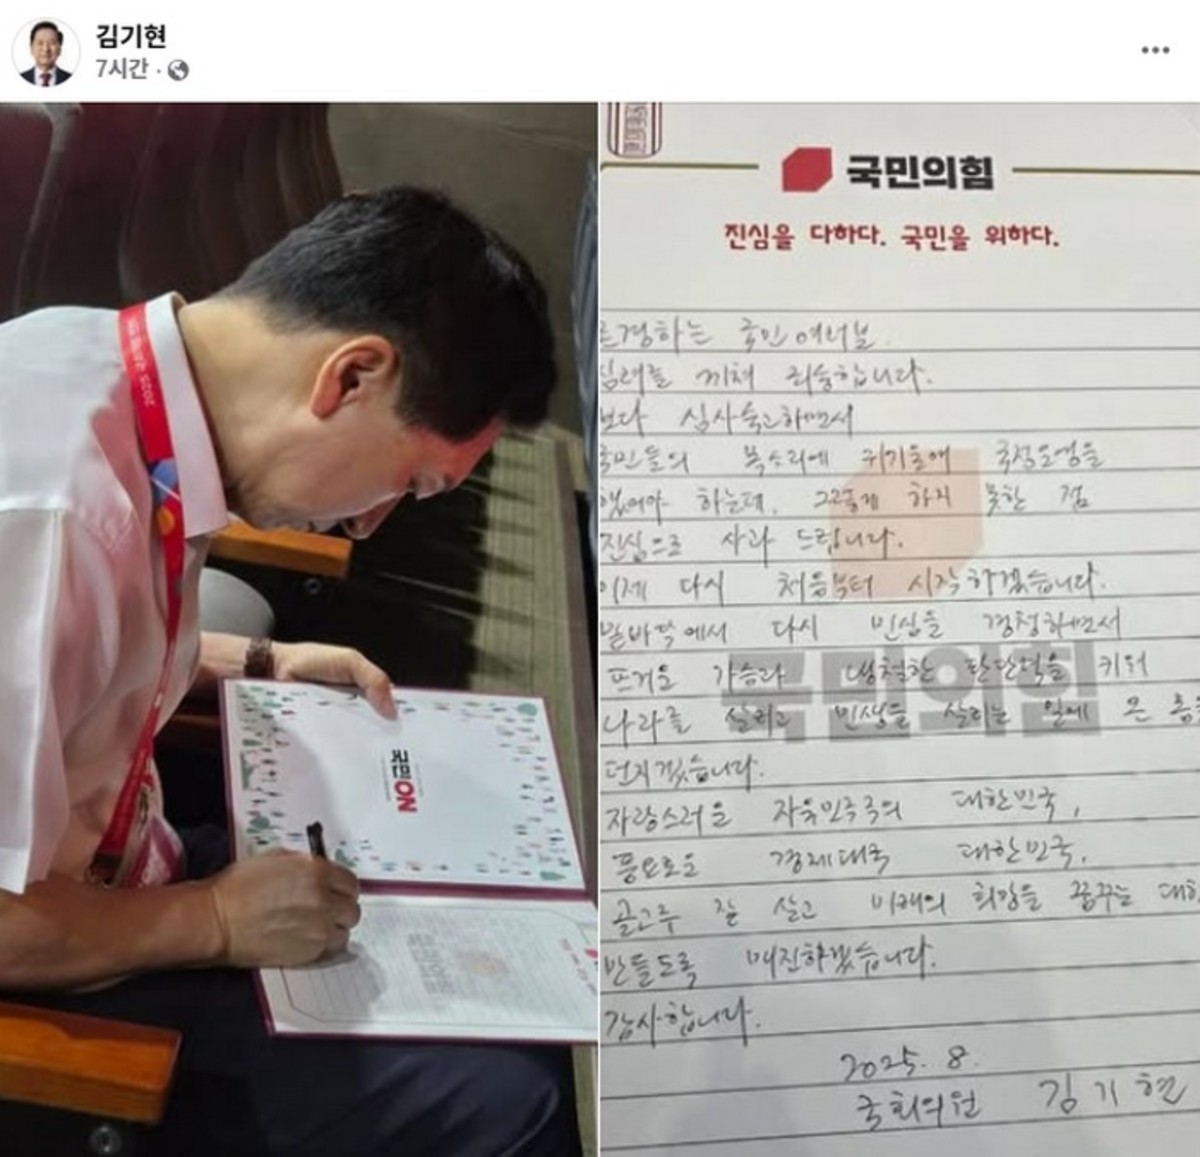 김기현
7시간
2025
국민ON
국민의힘
진심을 다하다. 국민을 위하다.
존경하는 국민 여러분.
심려를 끼쳐 죄송합니다.
보다 심사숙고하면서
국민들의 목소리에 귀기울여 국정운영을
했어야 하는데, 그렇게 하지 못한 점
진심으로 사과 드립니다.
이제 다시 처음부터 시작하겠습니다.
밑바닥에서 다시 민심을 경청하면서
뜨거운 가슴과 냉철한 판단력을 키워
나라를 살리고 민생을 살리는 일에 온 몸을
던지겠습니다.
자랑스러운 자유민주국의 대한민국,
풍요로운 경제대국 대한민국,
골고루 잘 살고 미래의 희망을 꿈꾸는 대한
만들도록 매진하겠습니다.
감사합니다.
2025. 8.
국회의원 김기현
국민의힘